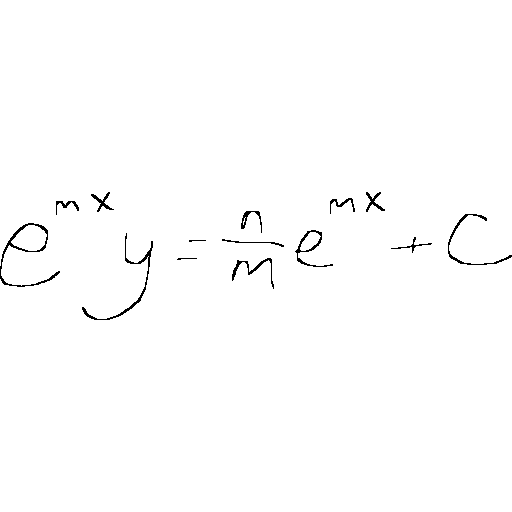 e^{mx} y = \frac{n}{m} e^{mx} + C